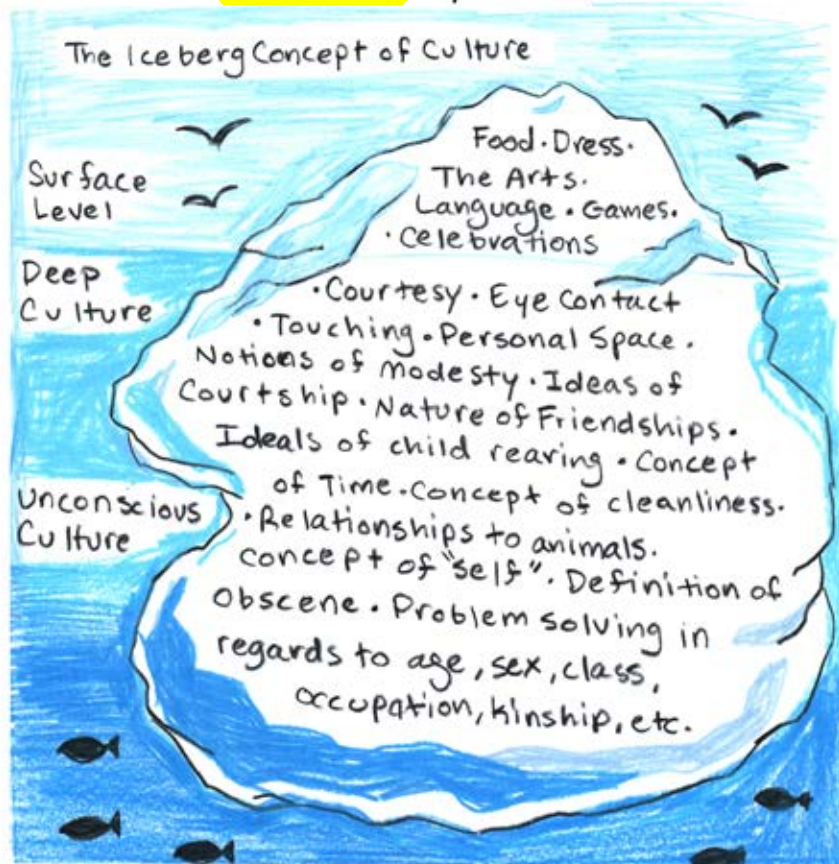 The Iceberg Concept of Culture
Surface
Level
Food · Dress ·
The Arts ·
Language · Games ·
· Celebrations
Deep
Culture
· Courtesy · Eye Contact
· Touching · Personal Space ·
Notions of modesty · Ideas of
Courtship · Nature of Friendships ·
Ideals of child rearing · Concept
of Time · Concept of cleanliness ·
Unconscious
Culture
· Relationships to animals ·
concept of "self" · Definition of
Obscene · Problem solving in
regards to age, sex, class,
occupation, kinship, etc.